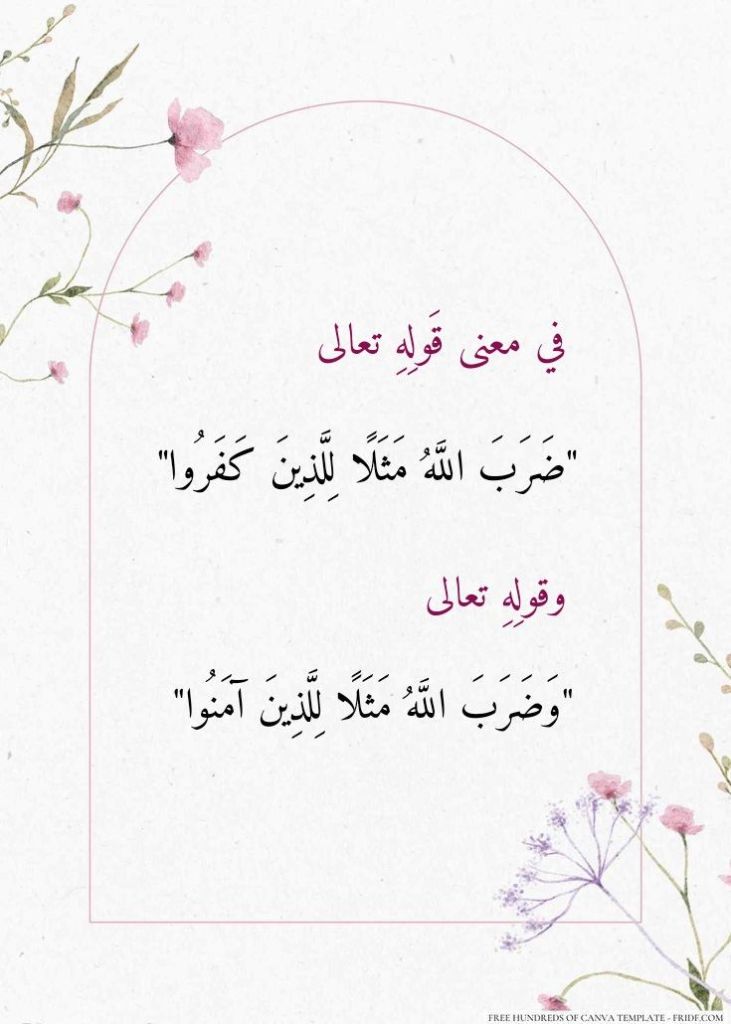 في معنى قَولِهِ تعالى
"ضَرَبَ اللَّهُ مَثَلًا لِلَّذِينَ كَفَرُوا"
وقولِهِ تعالى
"وَضَرَبَ اللَّهُ مَثَلًا لِلَّذِينَ آمَنُوا"
FREE HUNDREDS OF CANVA TEMPLATE - FRIDF.COM